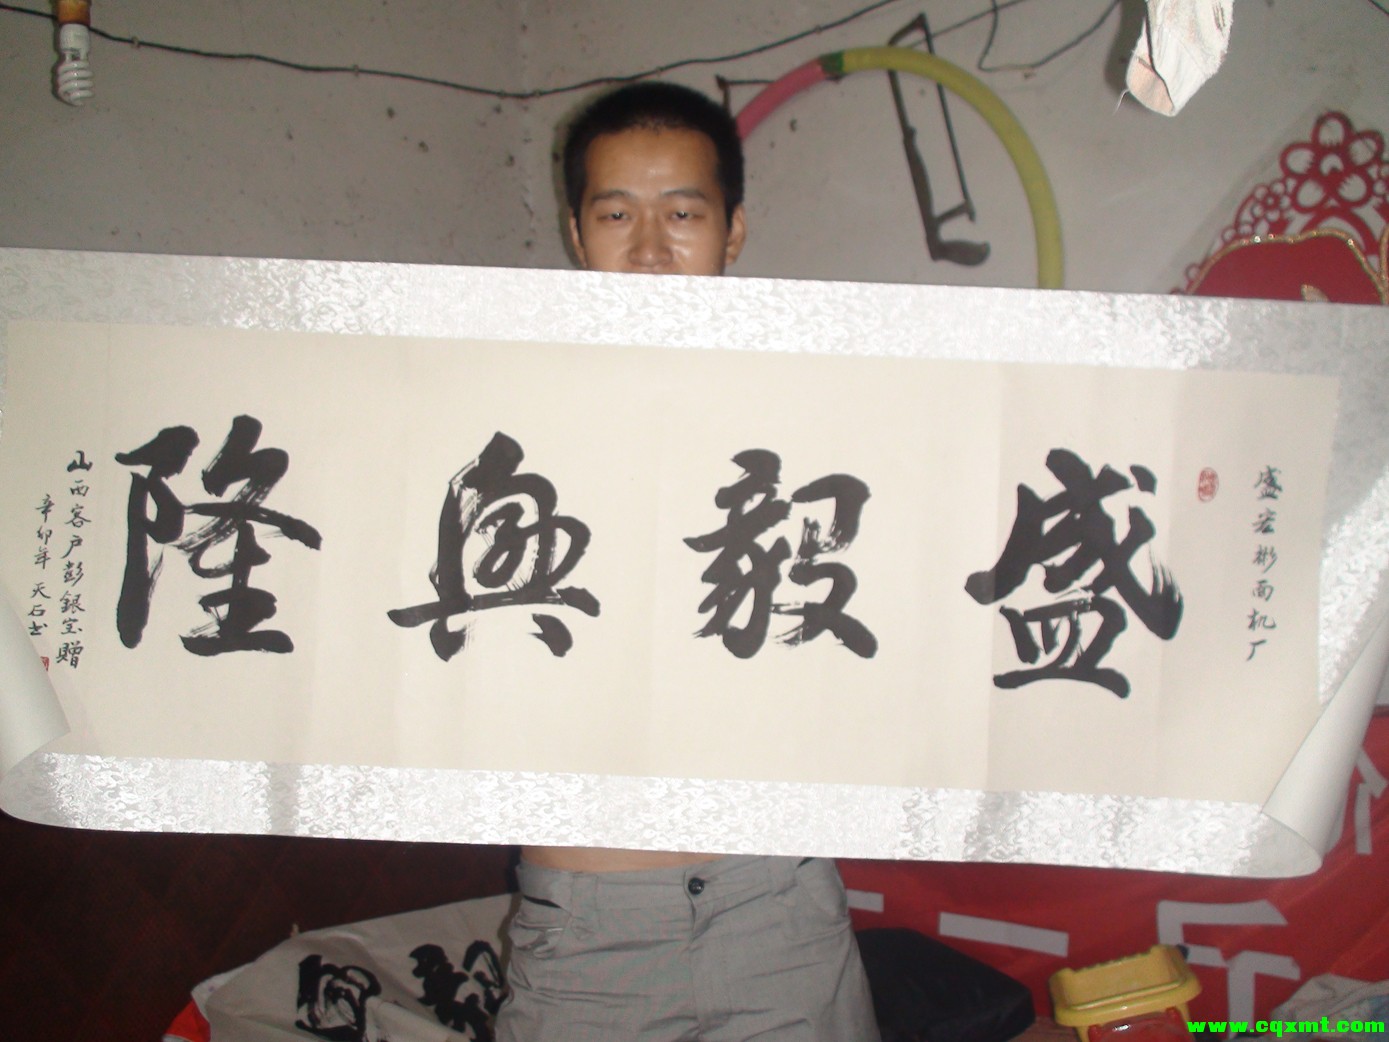 盛宏彬面机厂
盛毅興隆
山西客户彭銀宝贈
辛卯年 天石书
www.cqxmt.com